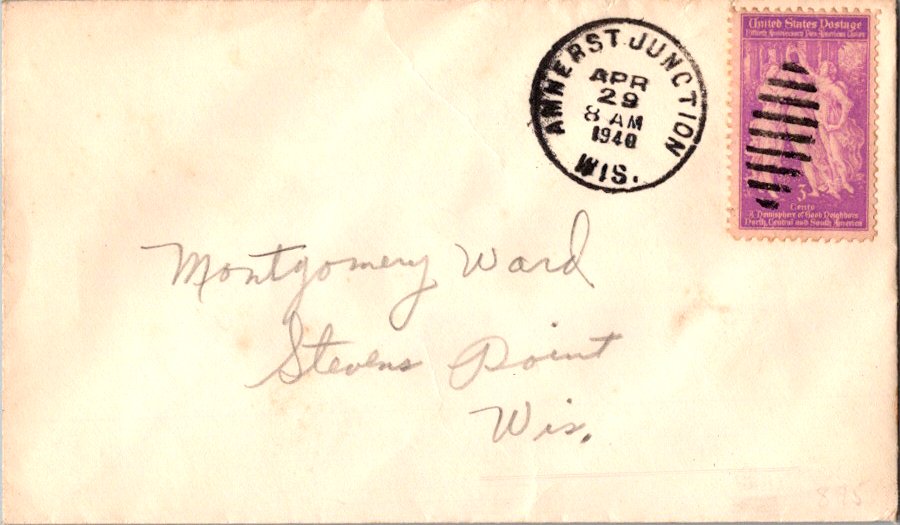 AMHERST JUNCTION
APR
29
8 AM
1940
WIS.
United States Postage
Fiftieth Anniversary Pan American Union
3
Cents
A Hemisphere of Good Neighbors
North, Central and South America
Montgomery Ward
Stevens Point
Wis.